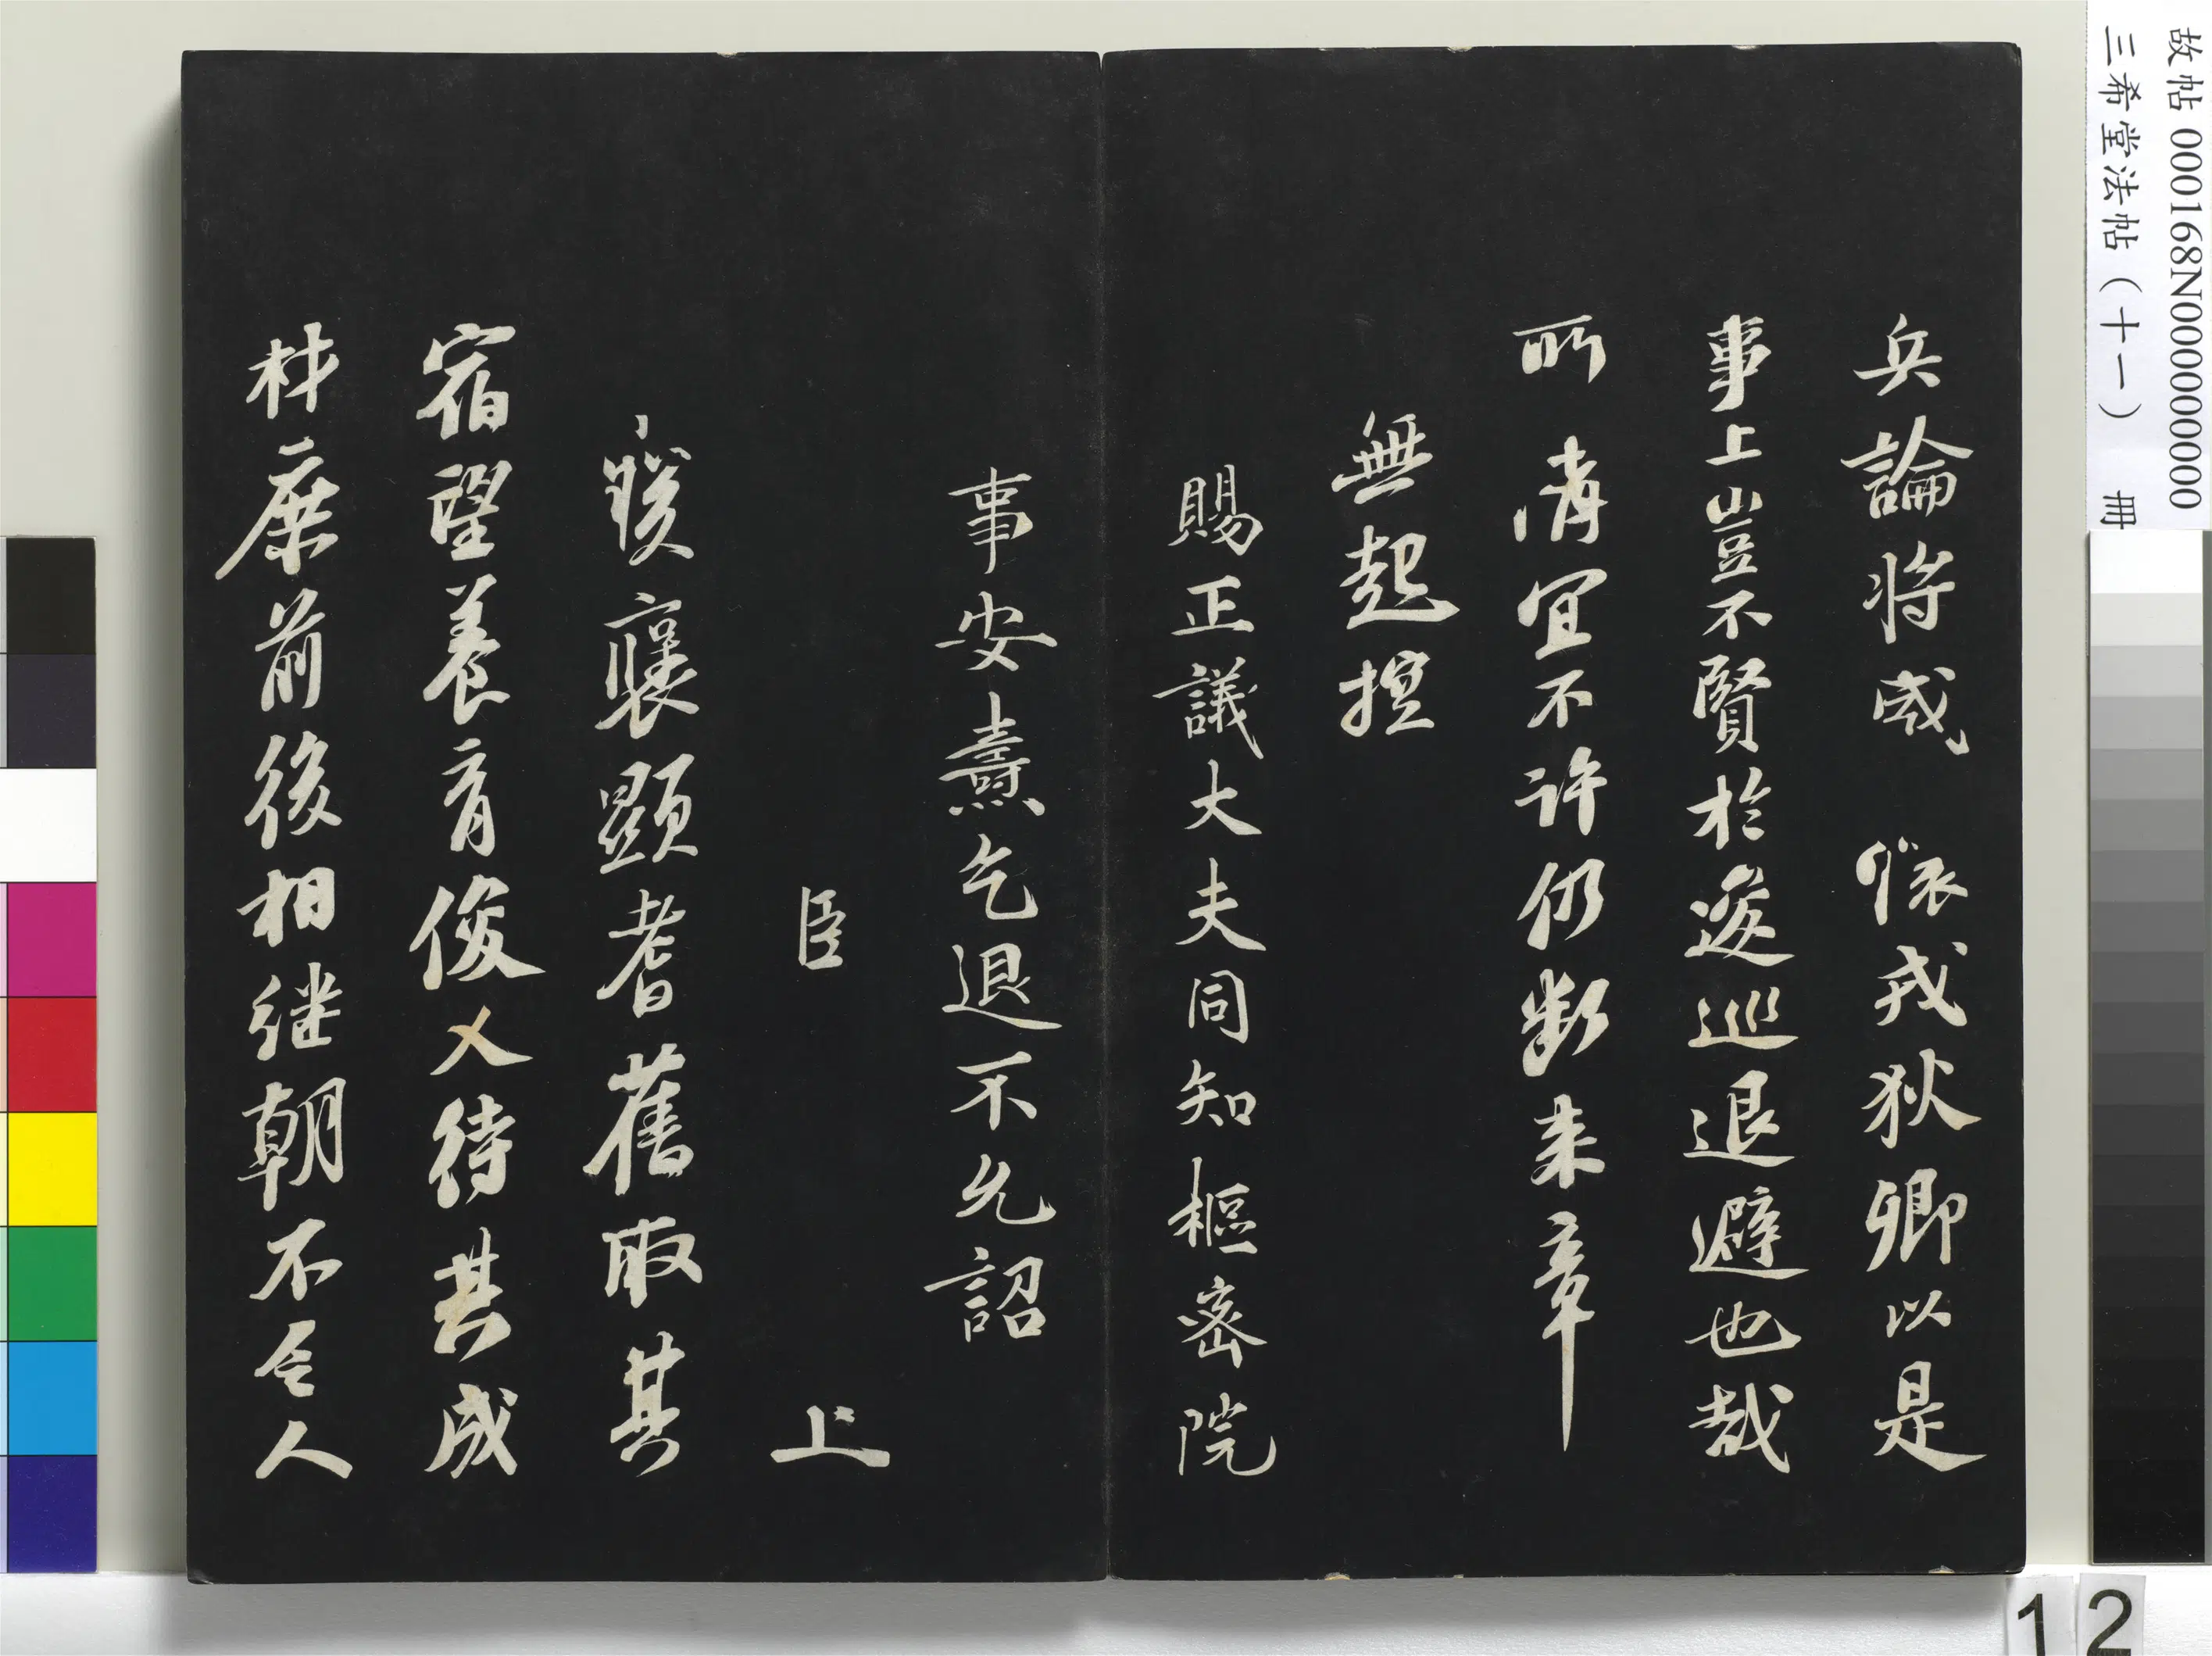 故帖 000168N000000000
三希堂法帖（十一） 冊
兵論將威 懷戎狄卿以是
事上豈不賢於逡巡退避也哉
所請宜不許仍斷來章
無起控
賜正議大夫同知樞密院
事安燾乞退不允詔
臣 上
朕褒顯耆舊取其
宿望養育俊乂待其成
材庶前後相继朝不乏人
12